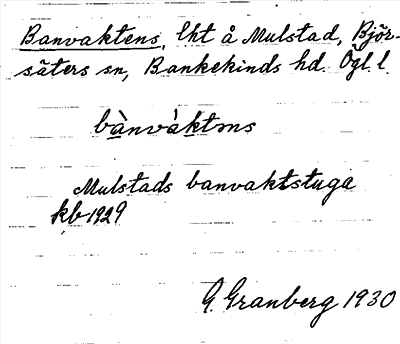 Banvaktens, lht å Mulstad, Björ-
säters sn, Bankekinds hd. Ögl. l.
bànvàktəns
Mulstads banvaktstuga
kb 1929
G. Granberg 1930